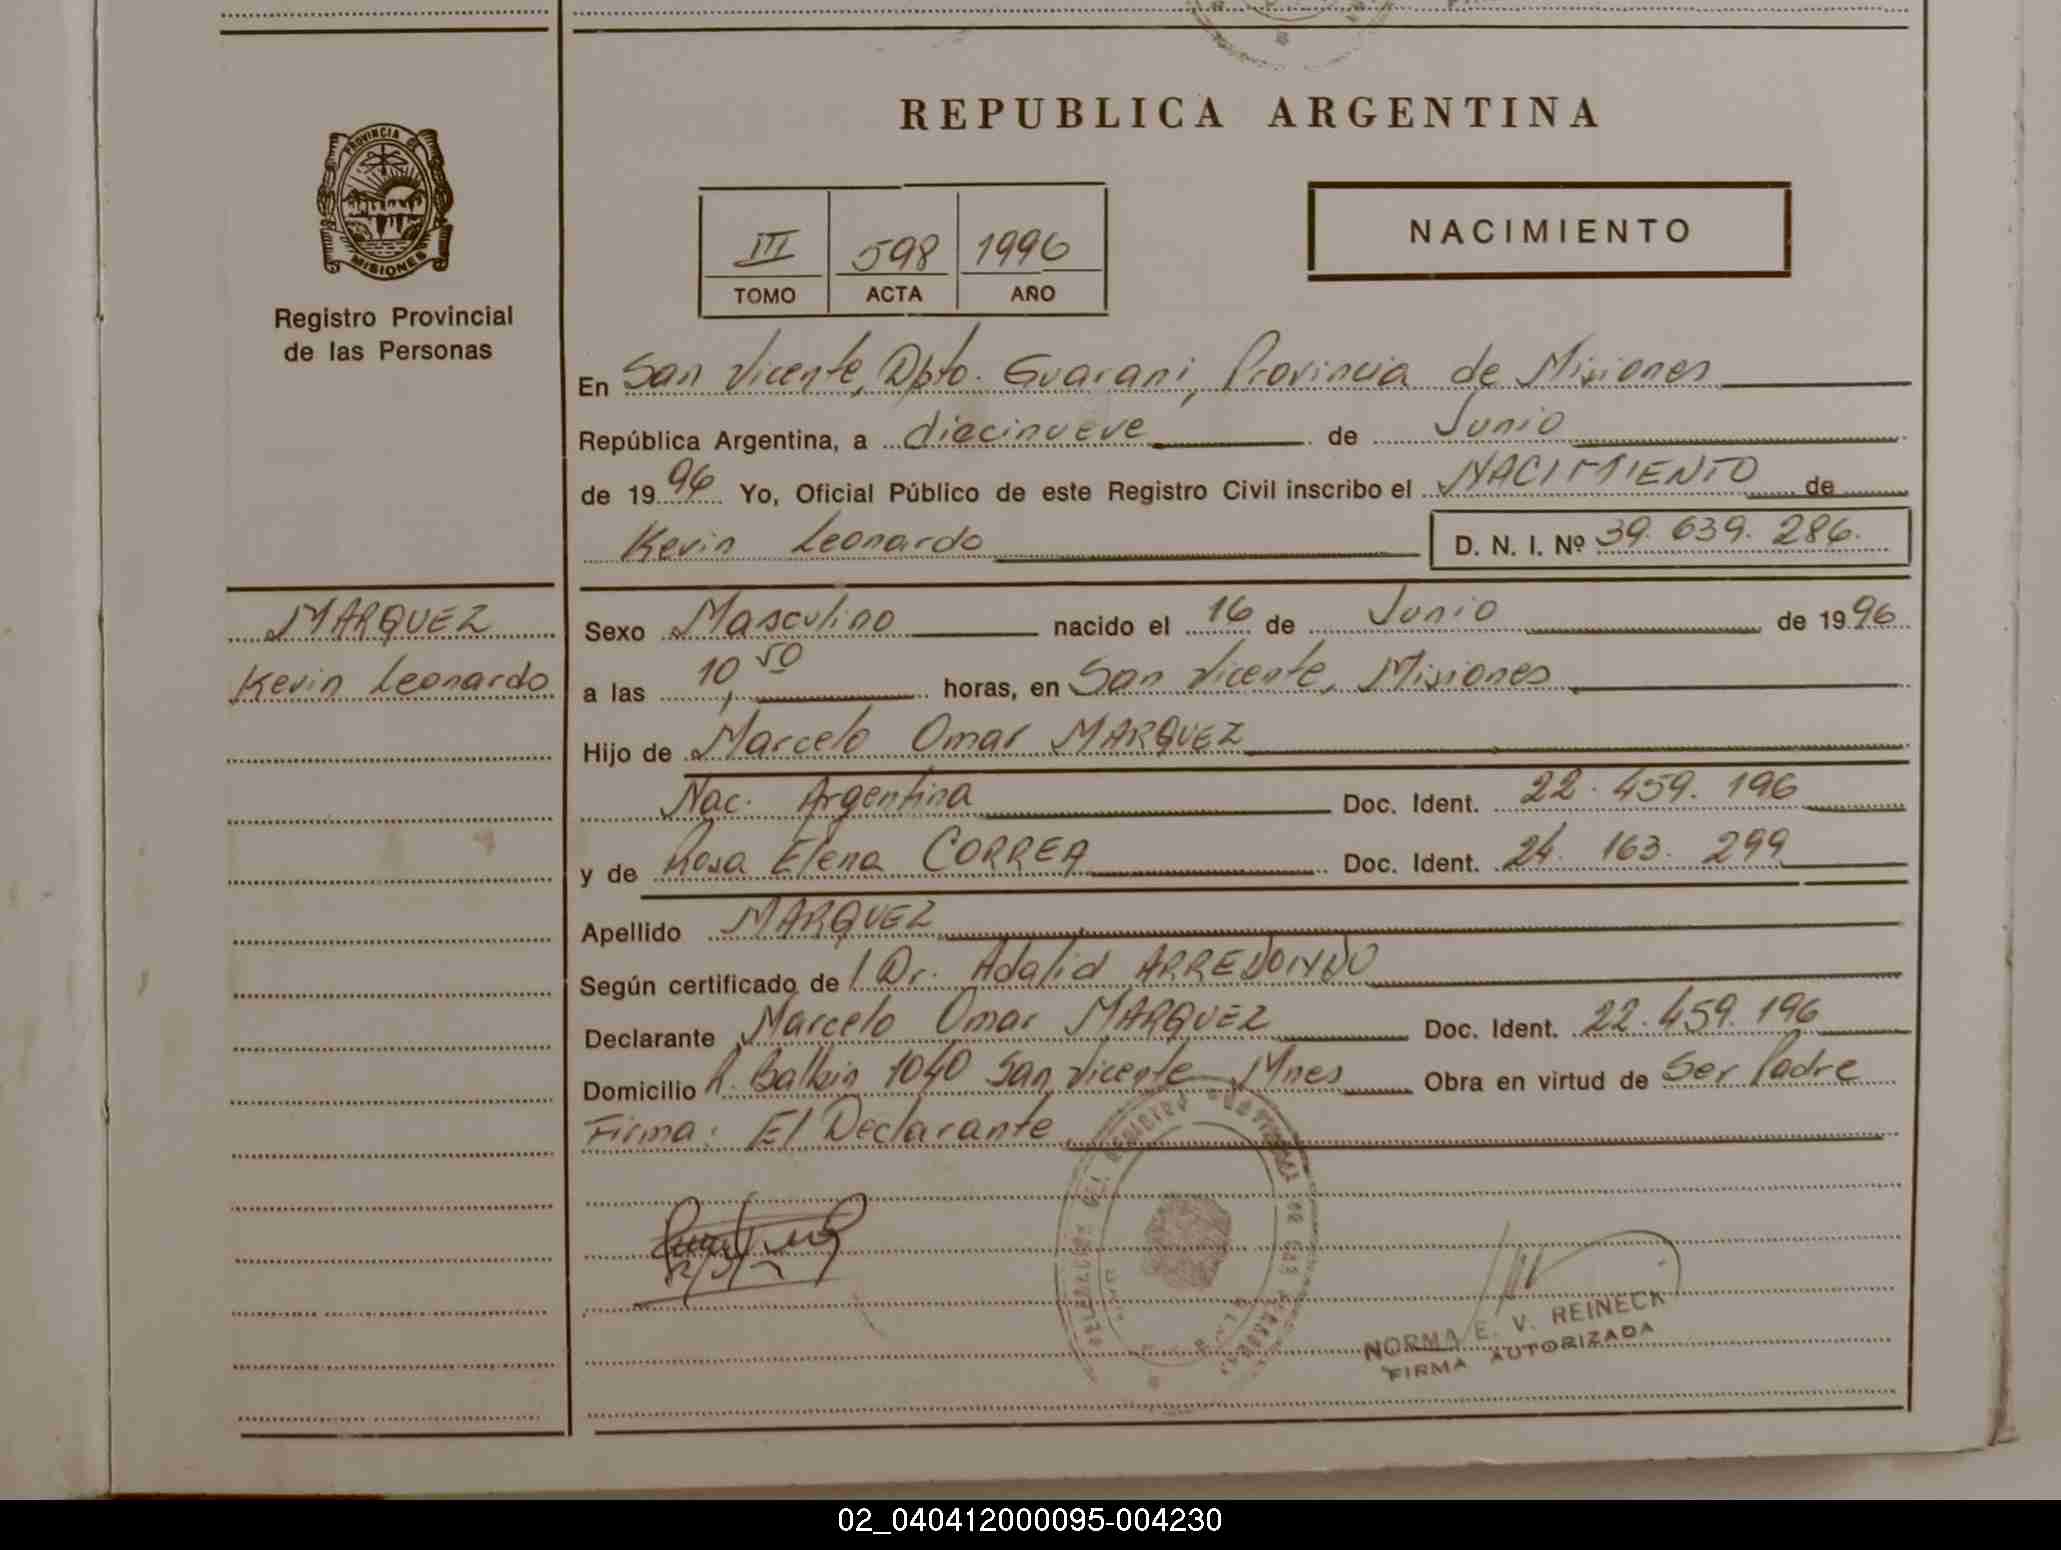 REPUBLICA ARGENTINA
PROVINCIA DE
MISIONES
Registro Provincial
de las Personas
III 598 1996
TOMO ACTA AÑO
NACIMIENTO
En San Vicente, Dpto. Guarani, Provincia de Misiones
República Argentina, a diecinueve de Junio
de 1996 Yo, Oficial Público de este Registro Civil inscribo el NACIMIENTO de
Kevin Leonardo D. N. I. Nº 39.639.286.
MARQUEZ
Kevin Leonardo
Sexo Masculino nacido el 16 de Junio de 1996
a las 10,50 horas, en San Vicente, Misiones
Hijo de Marcelo Omar MARQUEZ
Nac. Argentina Doc. Ident. 22.459.196
y de Rosa Elena CORREA Doc. Ident. 24.163.299
Apellido MARQUEZ
Según certificado de / Dr. Adalid ARREDONDO
Declarante Marcelo Omar MARQUEZ Doc. Ident. 22.459.196
Domicilio R. Balbin 1040 San Vicente Mnes Obra en virtud de Ser Padre
Firma: El Declarante
NORMA E. V. REINECK
FIRMA AUTORIZADA
02_040412000095-004230